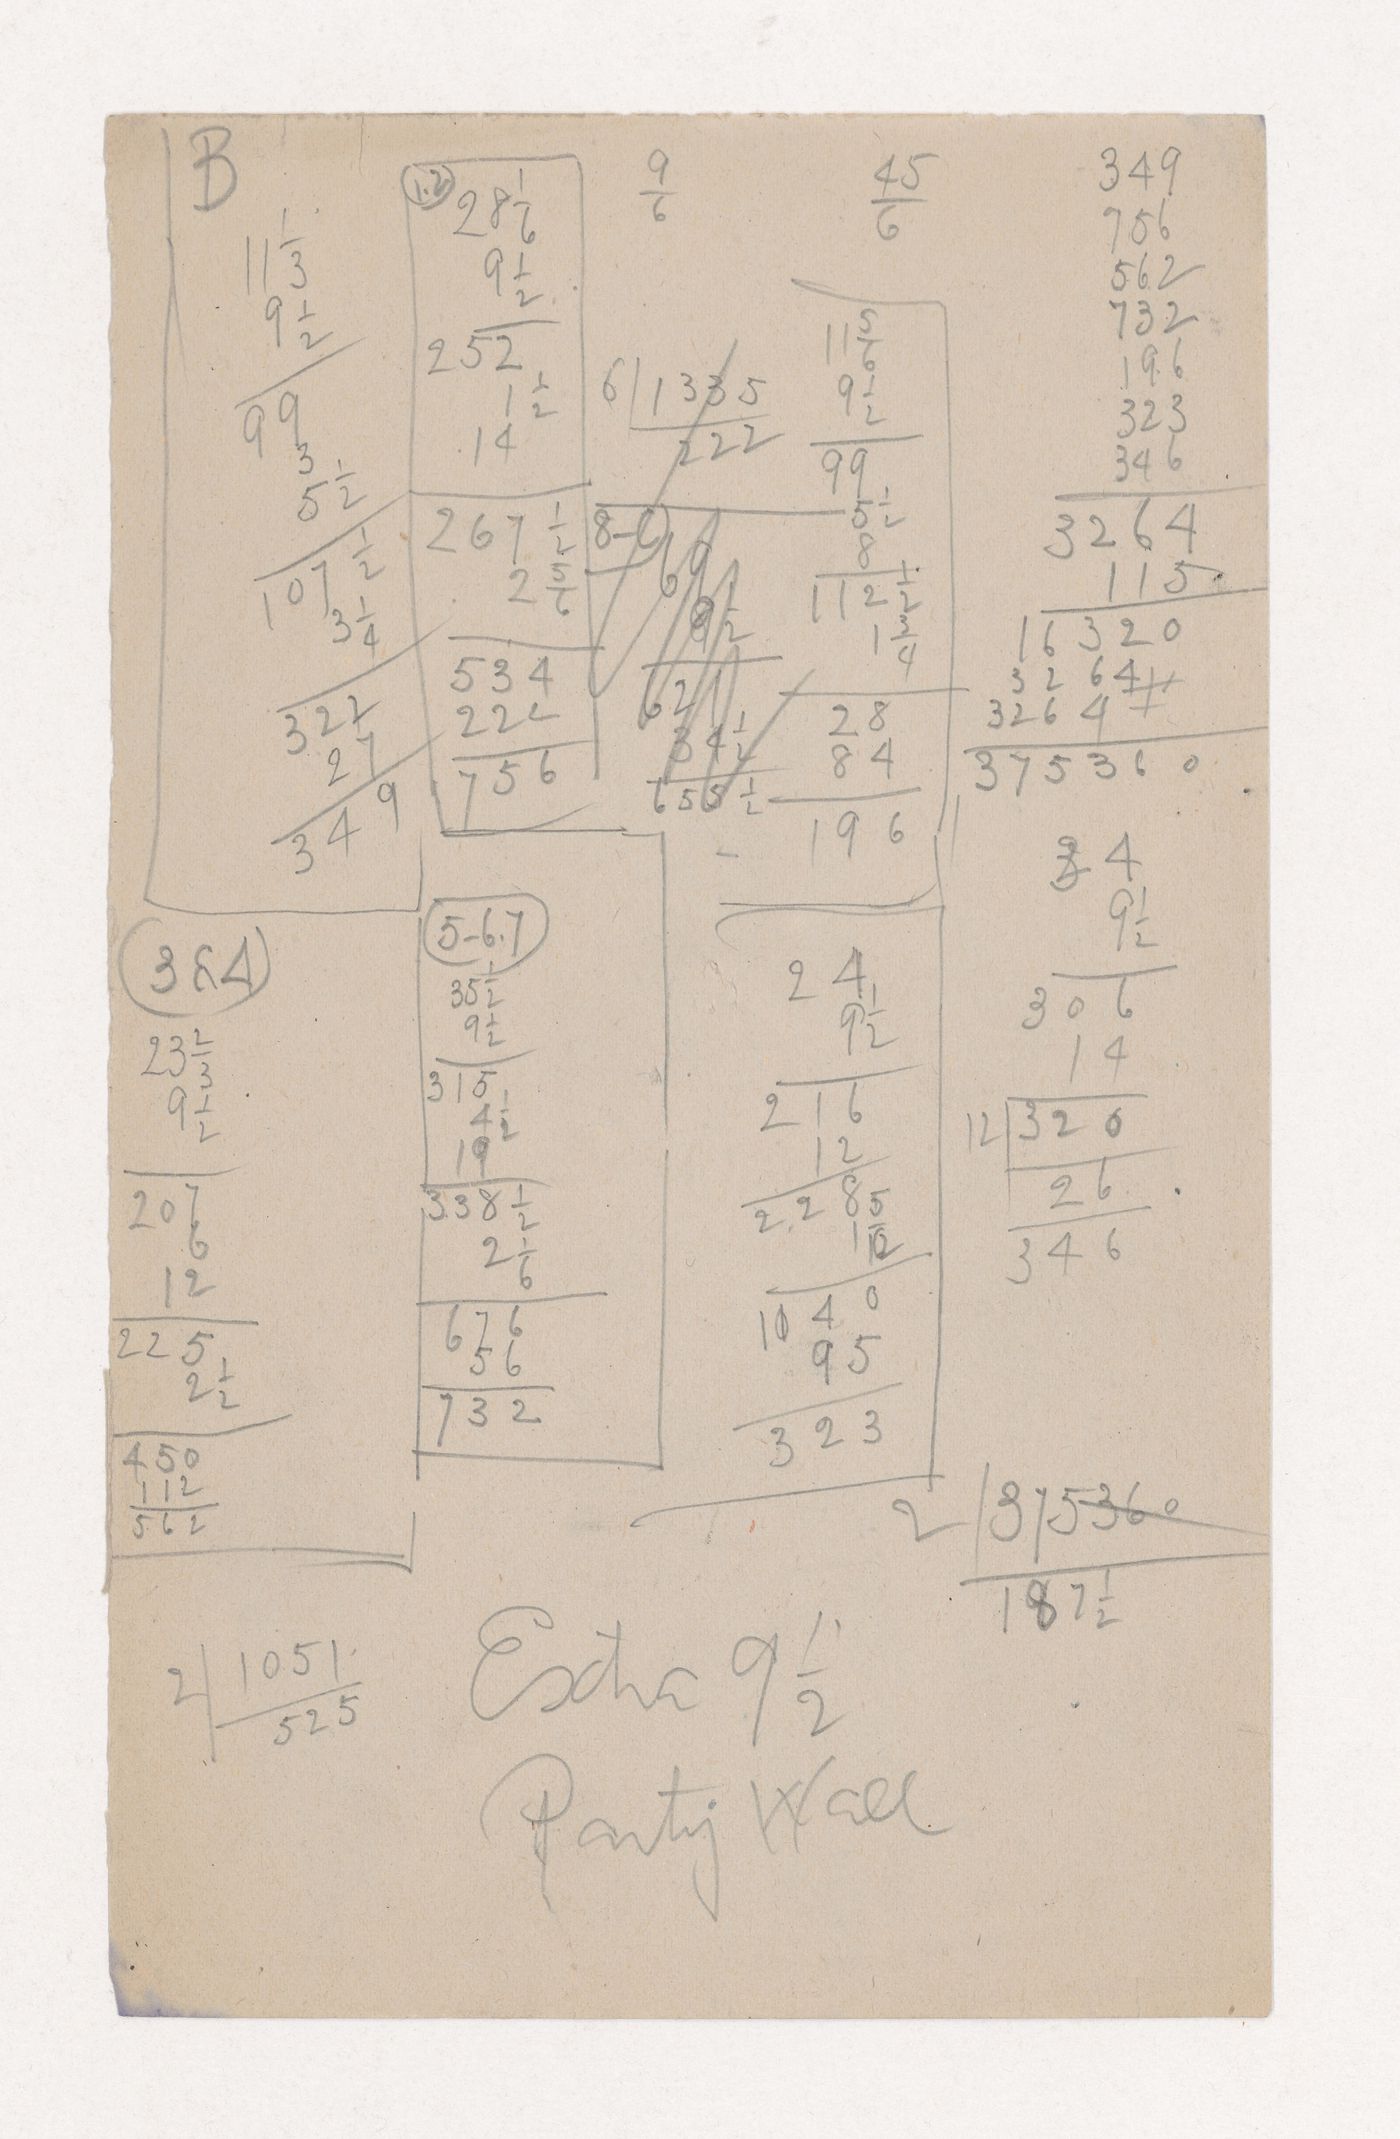 B
11 1/3
9 1/2
99
3
5 1/2
107 1/2
3 1/4
322
27
349
1.2
28 1/6
9 1/2
252
1 1/2
14
267 1/2
2 5/6
534
222
756
9/6
6 | 1335
222
8-
69
9 1/2
621
34 1/2
655 1/2
45/6
11 5/6
9 1/2
99
5 1/2
8
112 1/2
1 3/4
28
84
196
349
756
562
732
196
323
346
3264
115
16320
3264
3264
375360
3 & 4
23 2/3
9 1/2
207
6
12
225
2 1/2
450
112
562
5-6.7
35 1/2
9 1/2
315
4 1/2
19
338 1/2
2 1/6
676
56
732
24
9 1/2
216
12
228
1 5/12
95
323
34
9 1/2
306
14
12 | 320
26
346
2 | 375360
187 1/2
2 | 1051
525
Extra 9 1/2
Party Wall